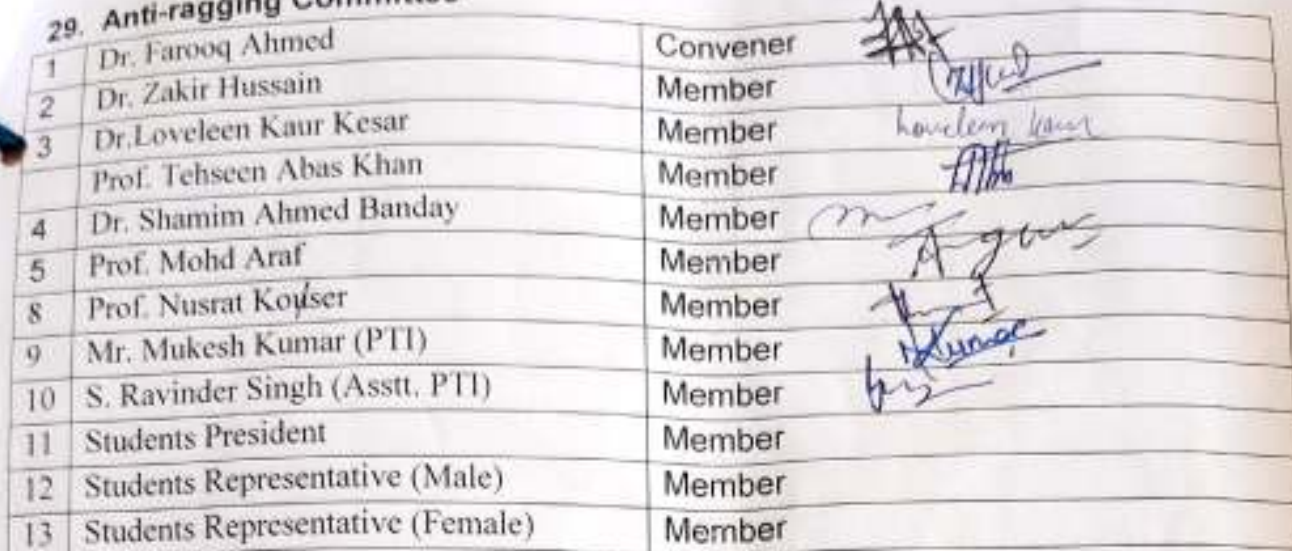 29. Anti-ragging Committee
1 Dr. Farooq Ahmed Convener
2 Dr. Zakir Hussain Member
3 Dr.Loveleen Kaur Kesar Member Loveleen kaur
Prof. Tehseen Abas Khan Member
4 Dr. Shamim Ahmed Banday Member
5 Prof. Mohd Araf Member
8 Prof. Nusrat Kouser Member
9 Mr. Mukesh Kumar (PTI) Member Kumar
10 S. Ravinder Singh (Asstt. PTI) Member
11 Students President Member
12 Students Representative (Male) Member
13 Students Representative (Female) Member